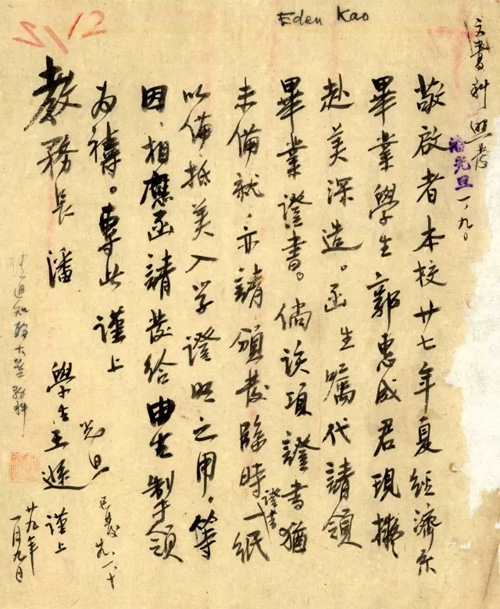 Eden Kao
文書科照發
潘光旦
一、九。
敬啟者本校廿七年夏經濟系
畢業學生郭惠成君現擬
赴美深造。函生囑代請領
畢業證書。倘該項證書猶
未備就,亦請頒發臨時證書一紙
以備抵美入学證明之用。等
因,相應函請發給由生領
為禱。專此 謹上
教務長潘 光旦
已發 一、十
學生 謹上
廿九年
一月九日
通知聯大